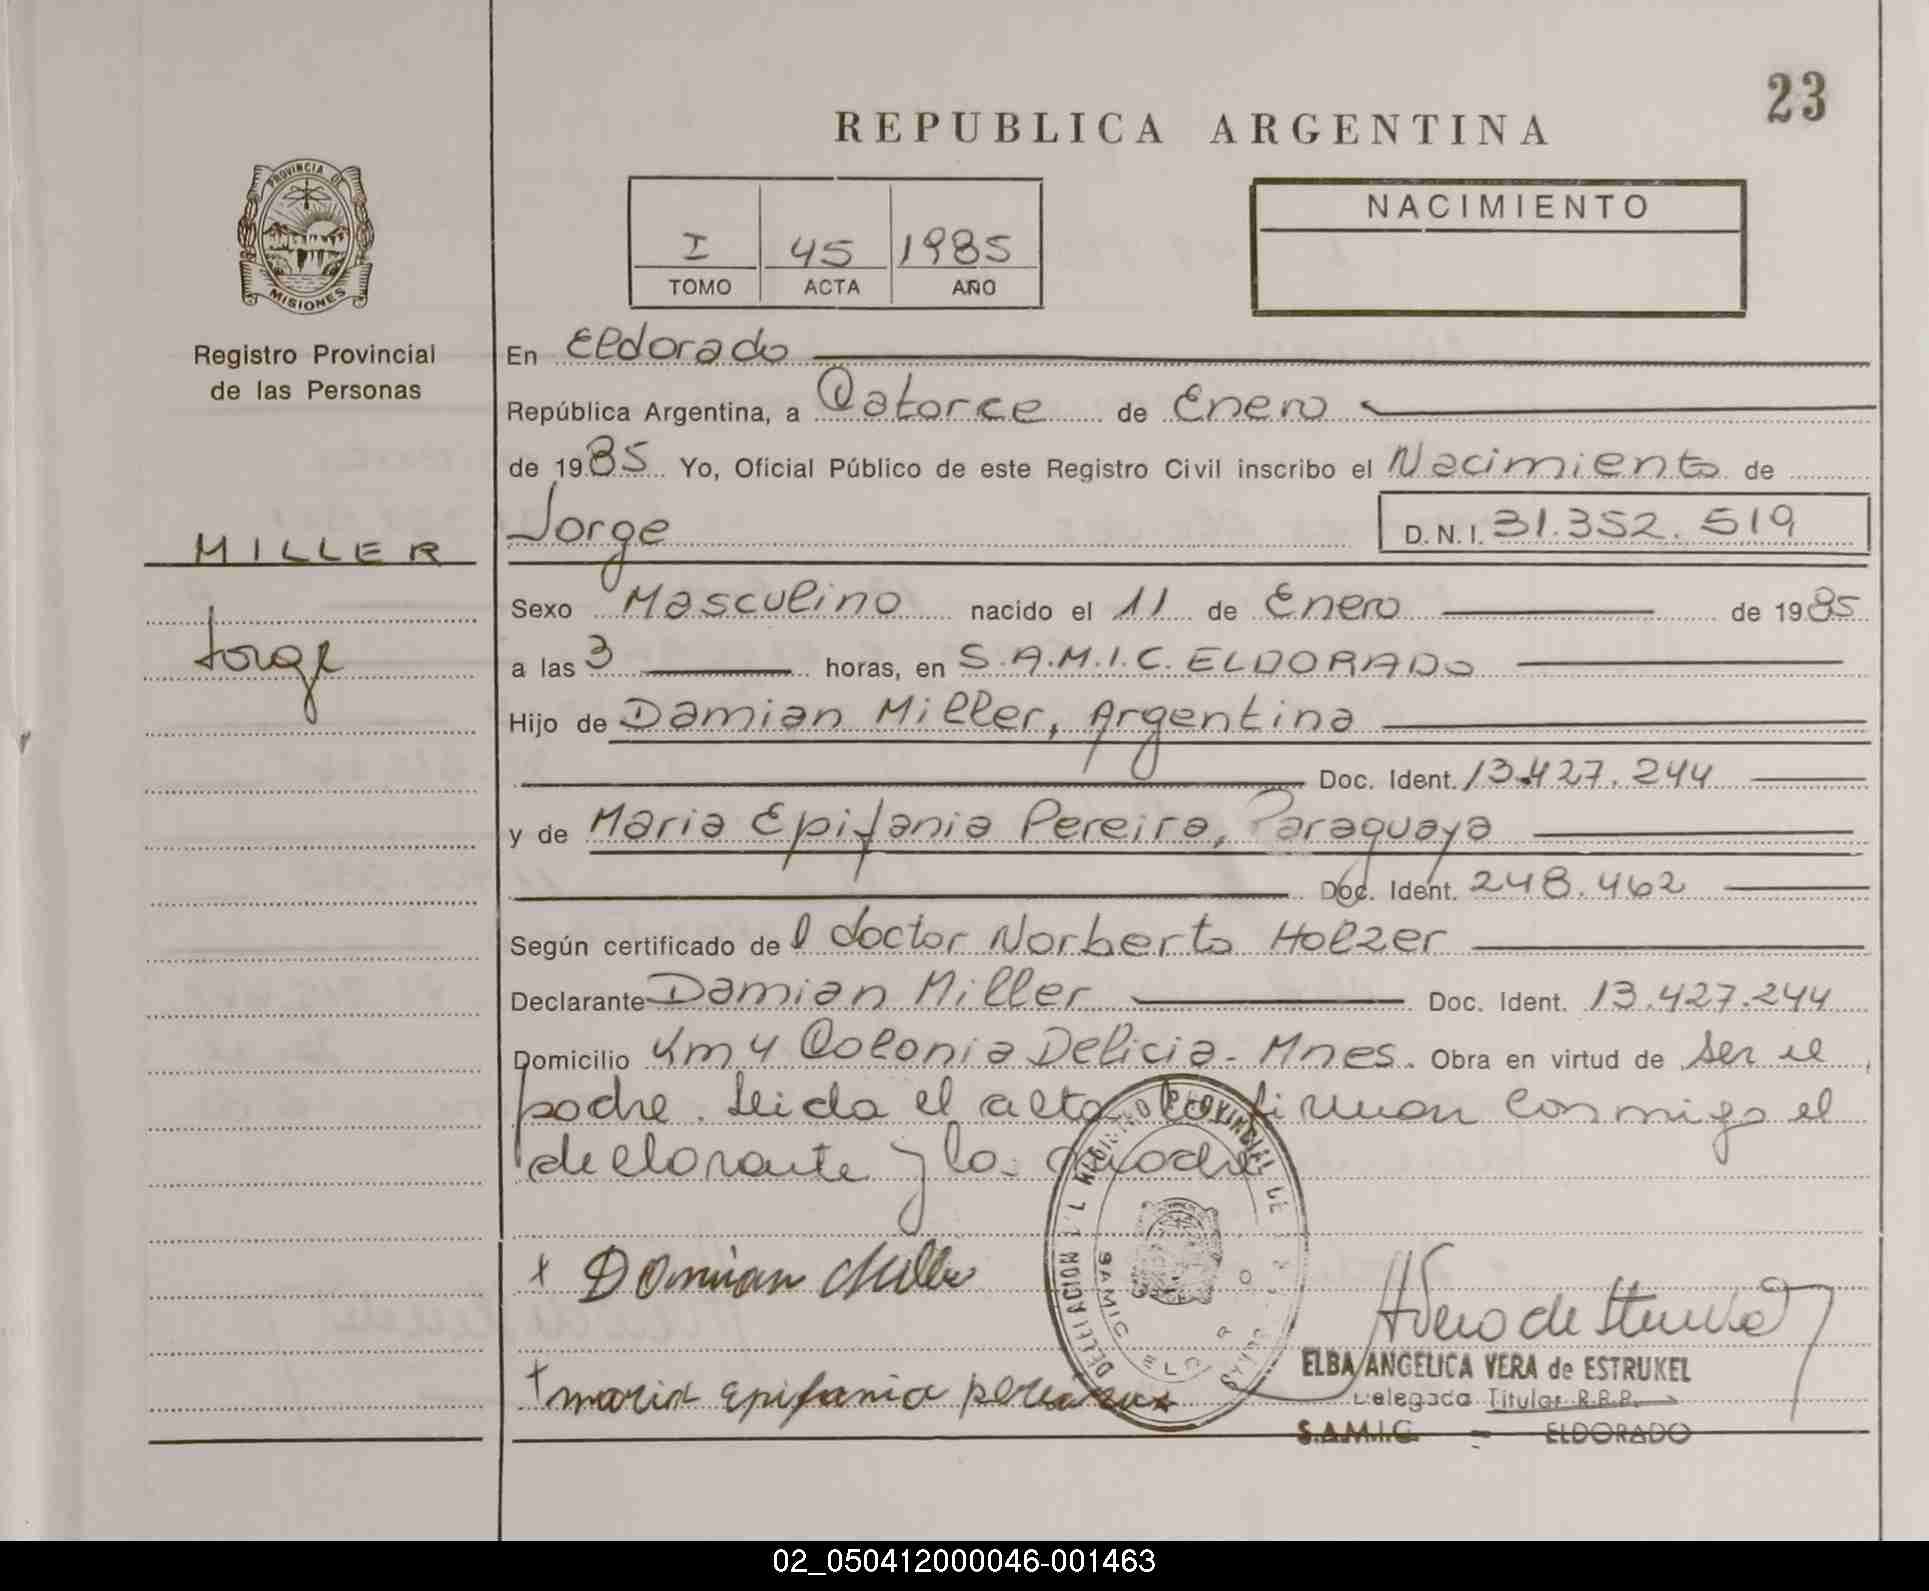 23
REPUBLICA ARGENTINA
PROVINCIA DE
MISIONES
Registro Provincial
de las Personas
I 45 1985
TOMO ACTA AÑO
NACIMIENTO
En Eldorado
República Argentina, a Catorce de Enero
de 1985 Yo, Oficial Público de este Registro Civil inscribo el Nacimiento de
Jorge D.N.I. 31.352.519
MILLER
Jorge
Sexo Masculino nacido el 11 de Enero de 1985
a las 3 horas, en S.A.M.I.C. ELDORADO
Hijo de Damian Miller, Argentina
Doc. Ident. 13.427.244
y de Maria Epifania Pereira, Paraguaya
Doc. Ident. 248.462
Según certificado del doctor Norberto Holzer
Declarante Damian Miller Doc. Ident. 13.427.244
Domicilio Km 4 Colonia Delicia - Mnes. Obra en virtud de ser el
padre. Leida el acta la firman conmigo el
declarante y la madre
REGISTRO PROVINCIAL DE
SAMIC
x Damian Miller
+ maria Epifania pereira
ELBA ANGELICA VERA de ESTRUKEL
Delegada Titular R.P.P.
S.A.M.I.C. - ELDORADO
02_050412000046-001463